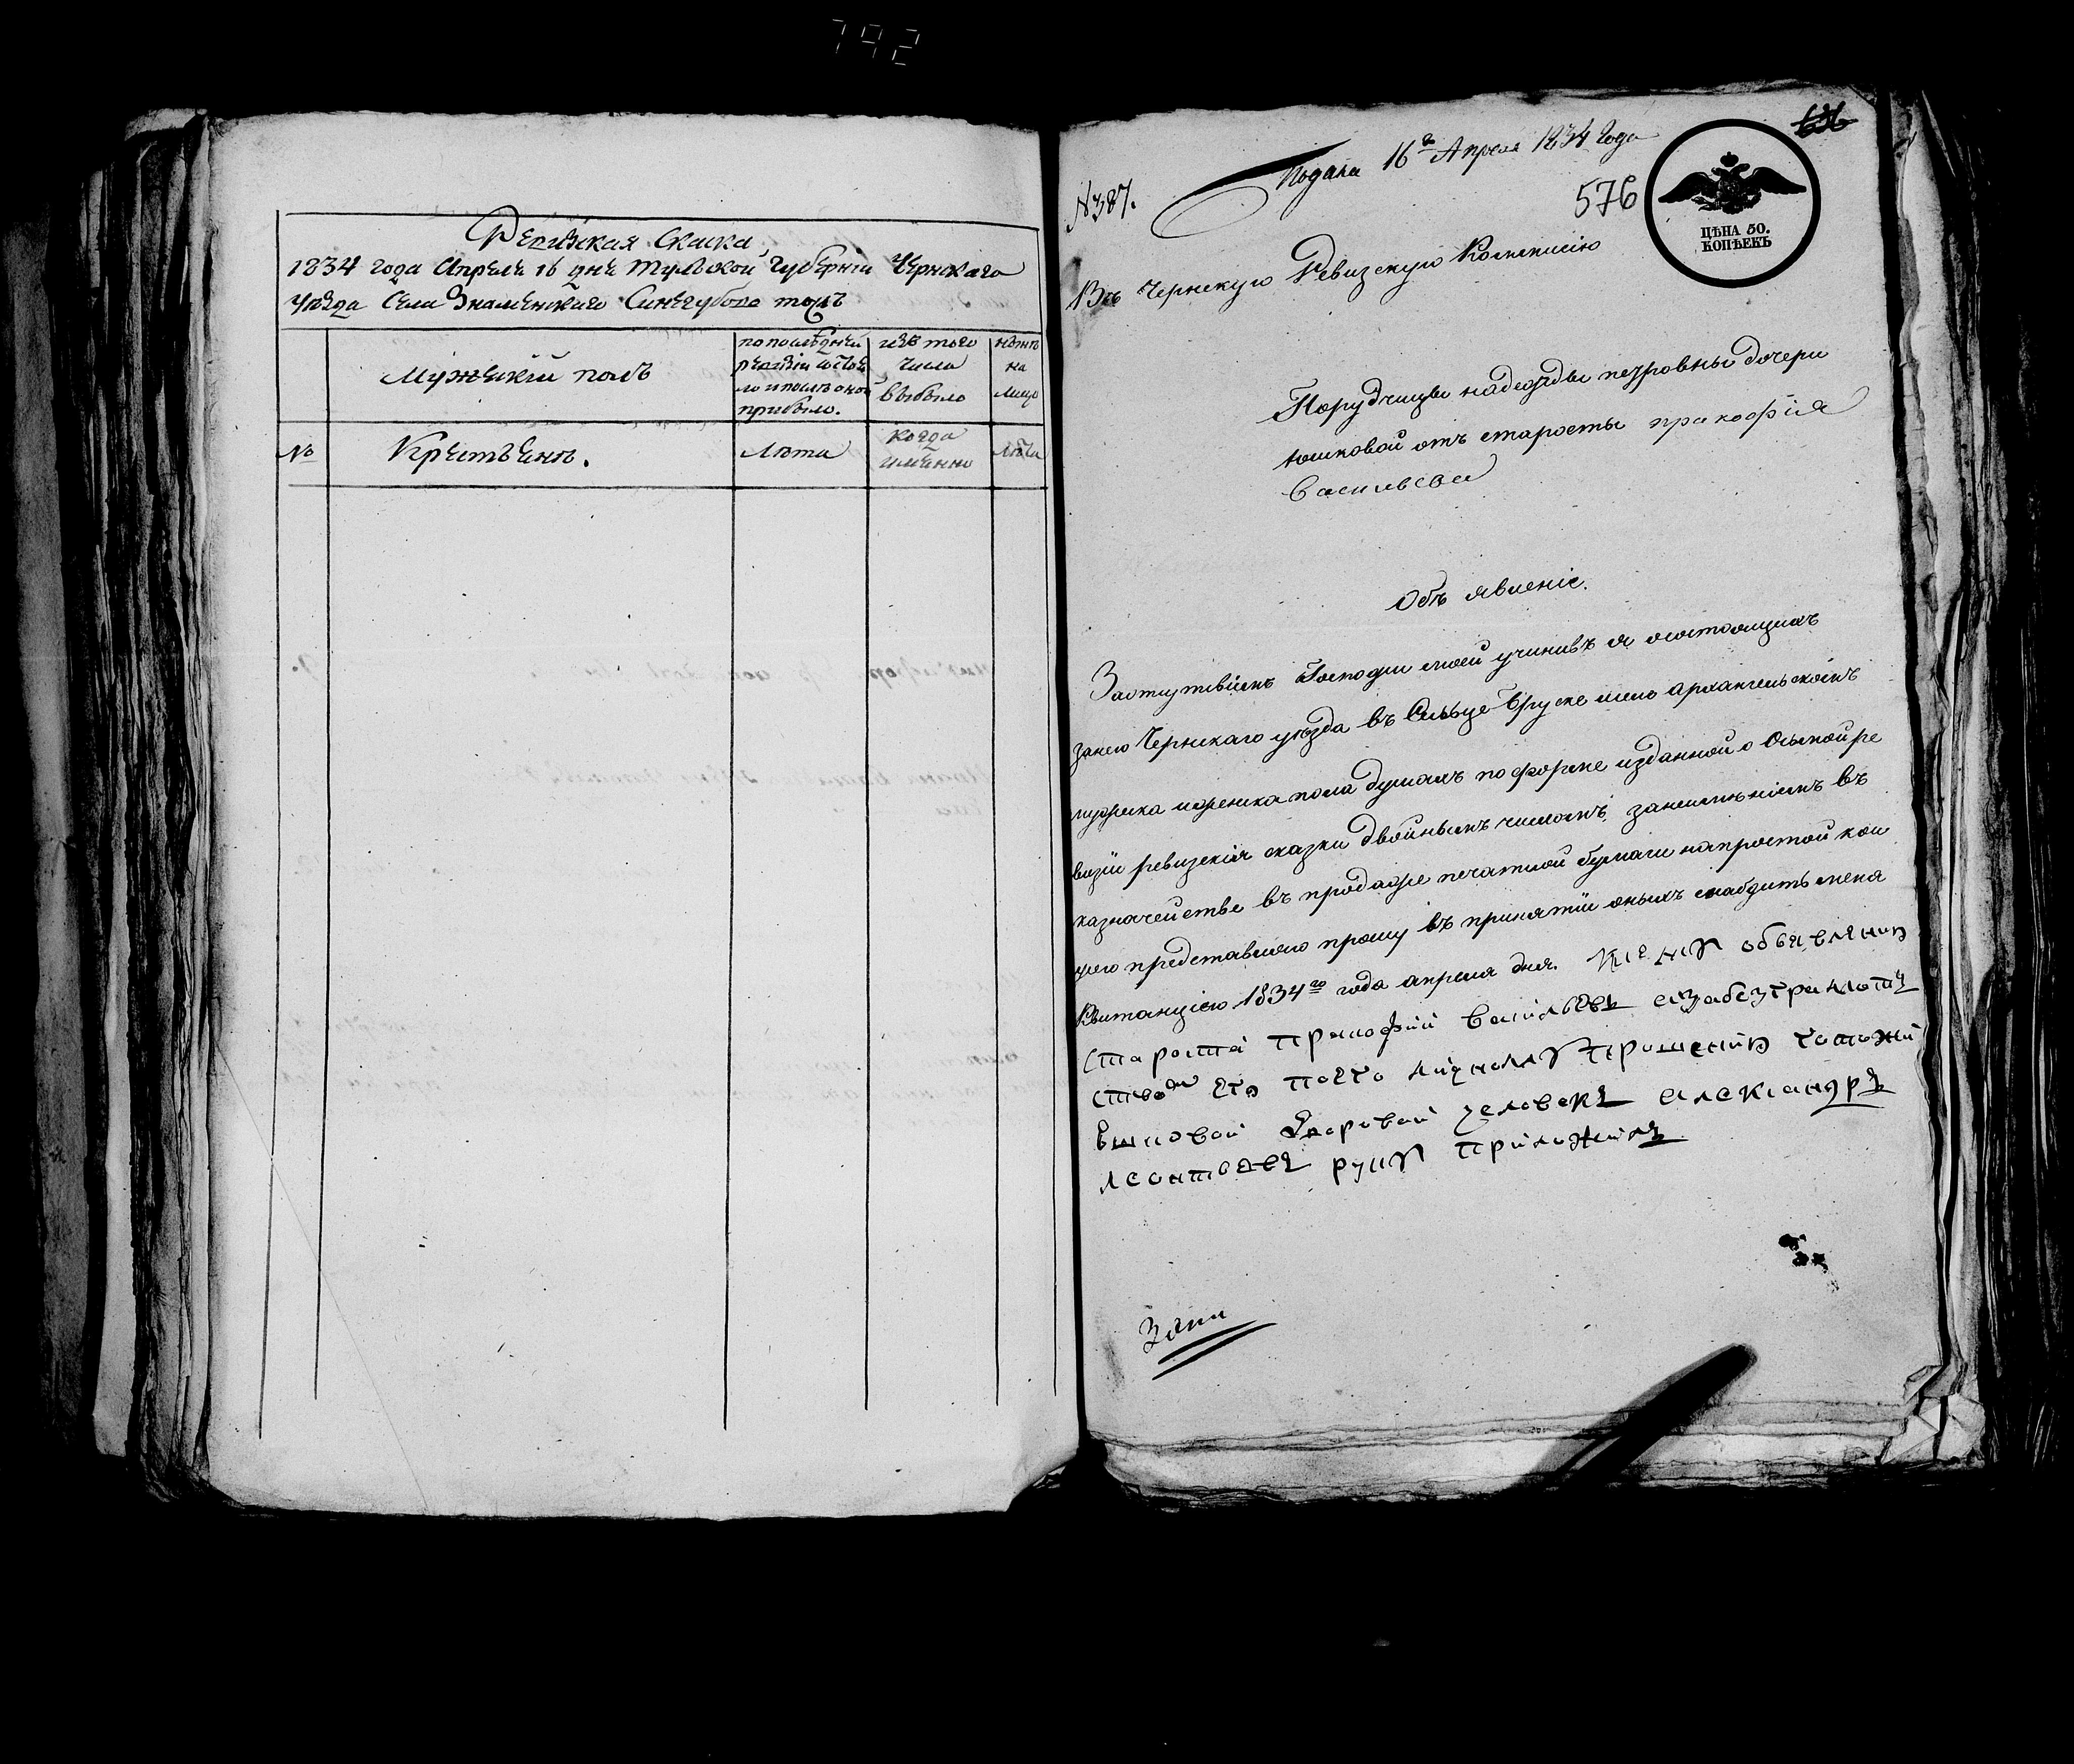 792
Ревизская Скаска
1834 года Апреля 16 дня Тульской Губернiи Чернскаго
уезда Села Знаменскаго Синегубово тожъ
Мужескiй полъ
по последней
ревизiи состоя
ло и после оной
прибыло.
изъ того
числа
выбыло
ныне
на
лицо
№
Крестьяне.
Лета
когда
именно
Лета
636
Подана 16го Апреля 1834 Года
№387.
576
ЦѢНА 50.
КОПѢЕКЪ
Въ Чернскую Ревизскую Коммисiю
Порутчицы надежды петровны дочери
юшковой отъ старосты пракофiя
Васильева
Объ явленiе.
Заотсутствiемъ Госпожи моей учинивъ я осостоящихъ
занею Чернскаго уезда въ Сельце
мужска иженска пола душахъ поформе изданной о Осьмой ре
визiи ревизскiя сказки двойнымъ числомъ, занеимѣнiемъ въ
казначействе въ продаже печатной бумаги напростой кои
представляю прошу въ принятiи оныхъ снабдить меня
Квитанцiею 1834го года апреля дня. Объявленю
Староста Пракофий Васильевъ азабезграмотъ
ствомъ Его поего личному прошению тоежъ
Юшковой дворовой человекъ Александръ
леонтьевъ руку приложилъ